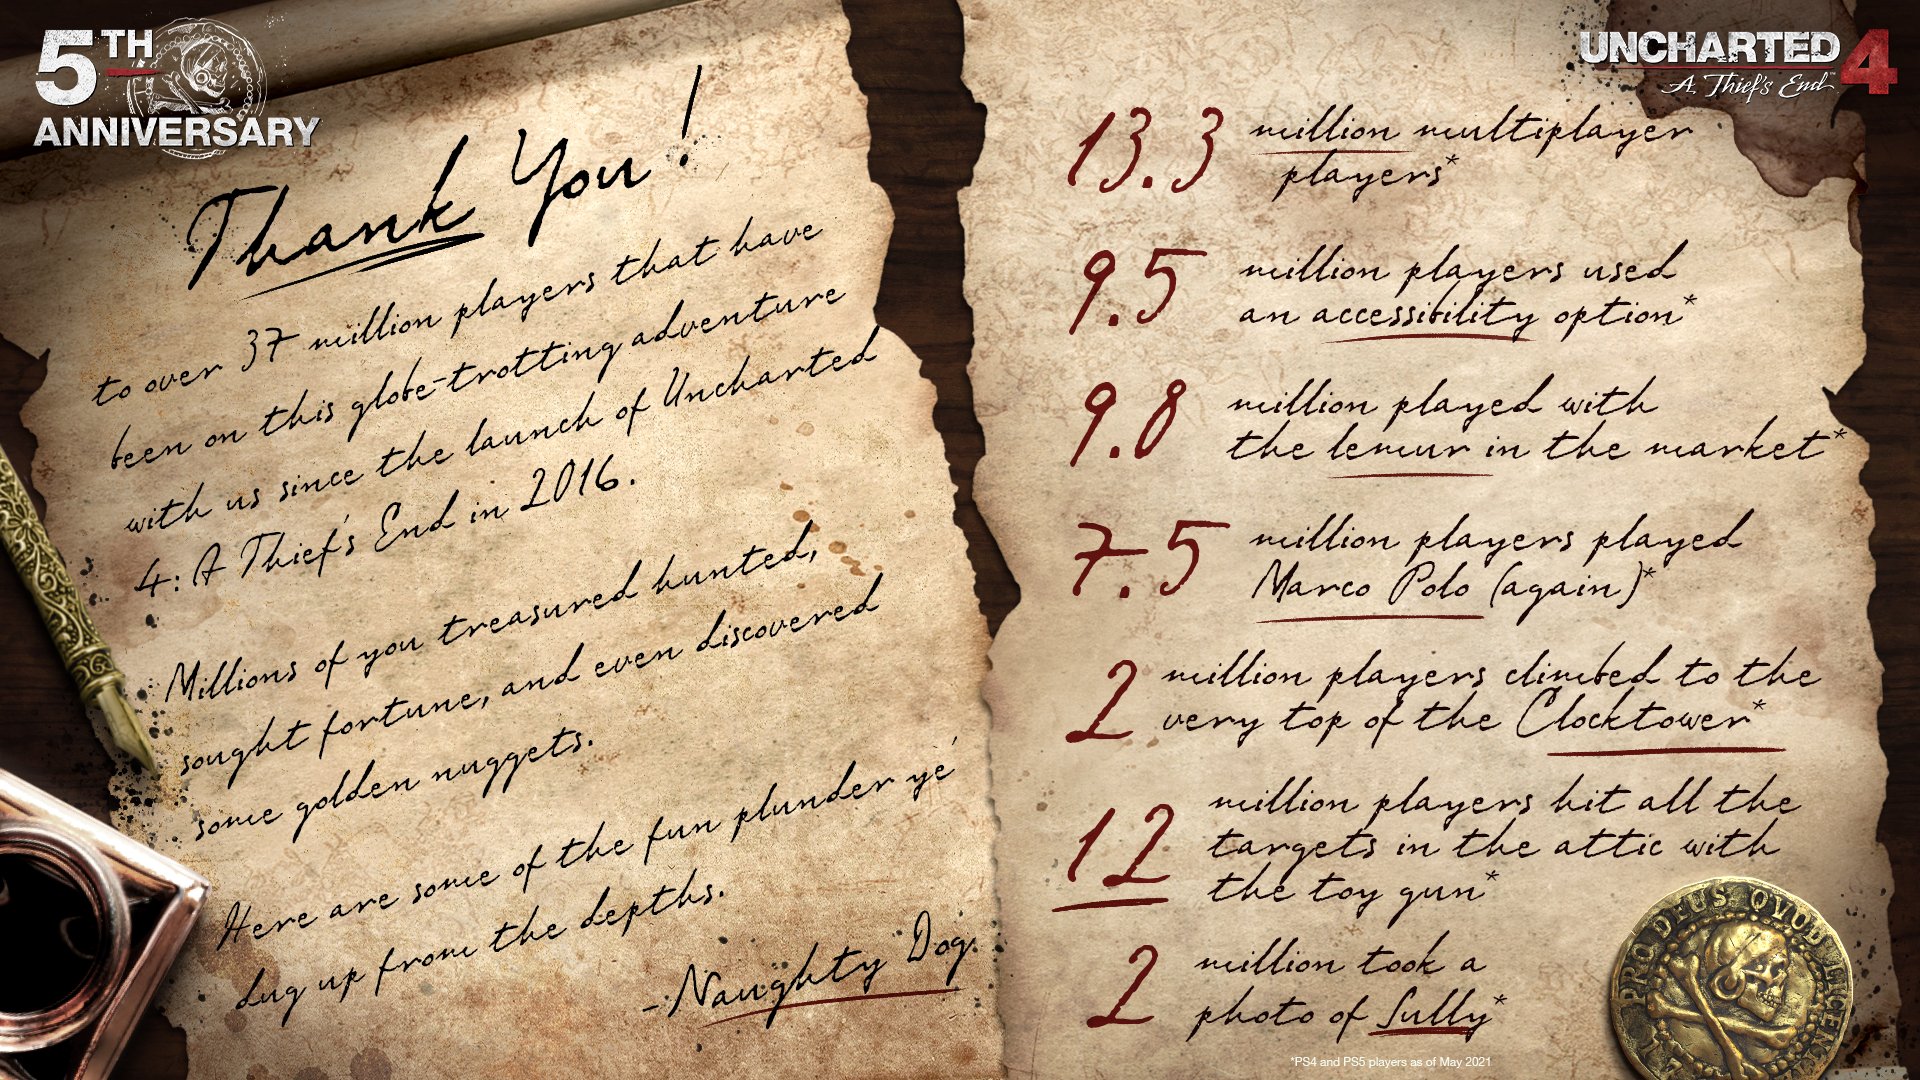 5TH
ANNIVERSARY
Thank You!
to over 37 million players that have
been on this globe-trotting adventure
with us since the launch of Uncharted
4: A Thief's End in 2016.
Millions of you treasured hunted,
sought fortune, and even discovered
some golden nuggets.
Here are some of the fun plunder yé
dug up from the depths.
-Naughty Dog.
UNCHARTED 4
A Thief's End™
13.3 million multiplayer
players*
9.5 million players used
an accessibility option*
9.8 million played with
the lemur in the market*
7.5 million players played
Marco Polo (again)*
2 million players climbed to the
very top of the Clocktower*
12 million players hit all the
targets in the attic with
the toy gun*
2 million took a
photo of Sully*
*PS4 and PS5 players as of May 2021
PRO DEUS QVOD LICENTIA